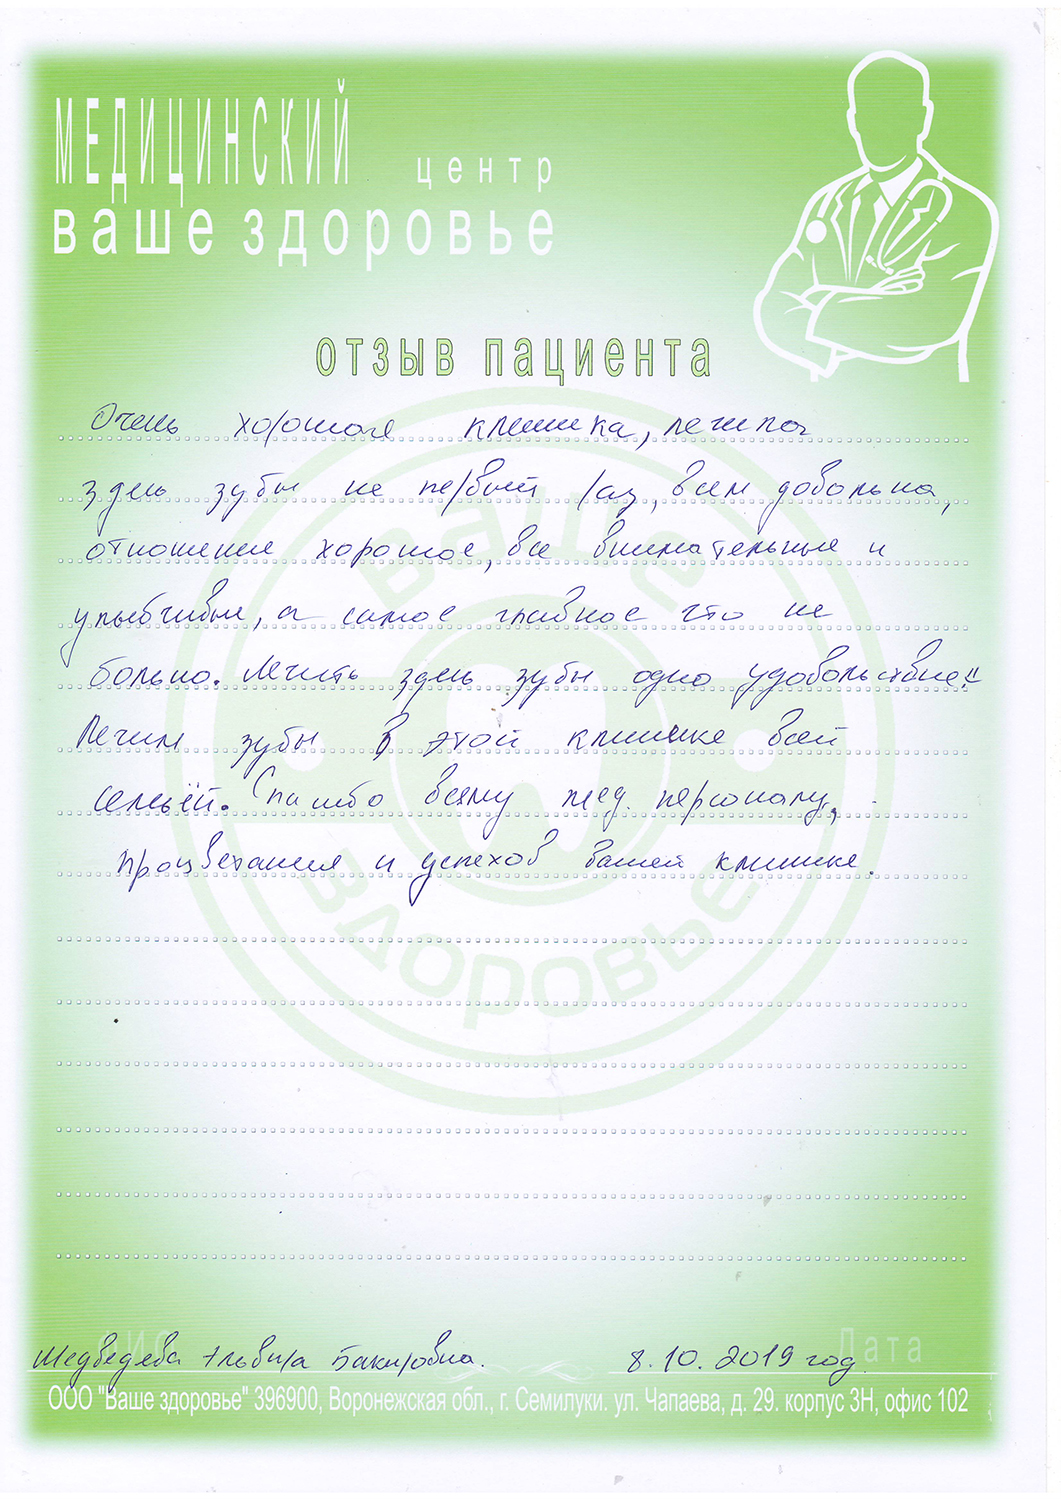 МЕДИЦИНСКИЙ центр
ваше здоровье
отзыв пациента
Очень хорошая клиника, лечила
здесь зубы не первый раз, всем довольна,
отношение хорошее, все внимательные и
улыбчивые, а самое главное что не
больно. Лечить здесь зубы одно удовольствие!!
Лечим зубы в этой клинике всей
семьёй. Спасибо всему мед. персоналу,
процветания и успехов вашей клинике.
ваше
здоровье
ФИО Дата
Медведева Эльвира Бакировна. 8.10.2019 год
ООО "Ваше здоровье" 396900, Воронежская обл., г. Семилуки. ул. Чапаева, д. 29. корпус 3Н, офис 102